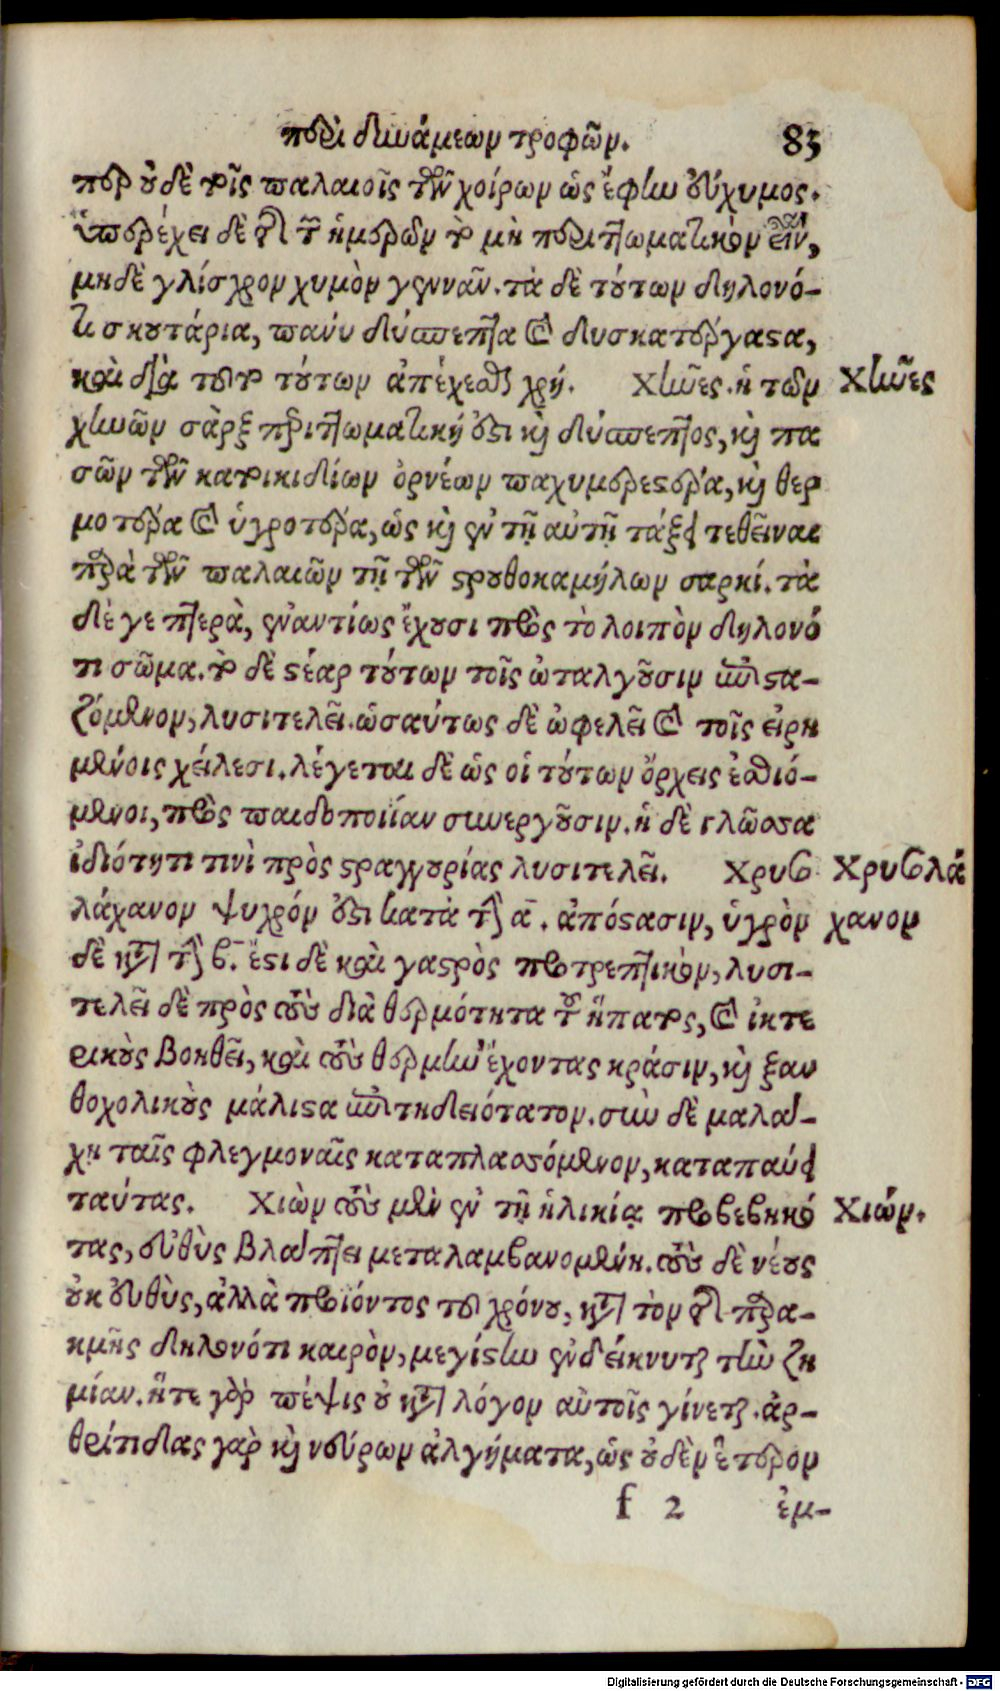 περὶ δυνάμεων τροφῶν. 83
περ οὐδὲ τοῖς παλαιοῖς τῶν χοίρων ὡς ἔφην εὔχυμος.
ὑπερέχει δὲ ἀπὸ τῶν ἡμερῶν τὸ μὴ περιττωματικὸν εἶναι,
μηδὲ γλίσχρον χυμὸν γεννᾶν. τὰ δὲ τούτων δηλονό-
τι σκουτάρια, πάνυ δύσπεπτα καὶ δυσκατέργαστα,
καὶ διὰ τοῦτο τούτων ἀπέχεσθαι χρή. Χῆνες. ἡ τῶν Χῆνες
χηνῶν σὰρξ περιττωματική ἐστι καὶ δύσπεπτος, καὶ πα
σῶν τῶν κατοικιδίων ὀρνέων παχυμερεστέρα, καὶ θερ
μοτέρα καὶ ὑγροτέρα, ὡς καὶ ἐν τῇ αὐτῇ τάξει τεθεῖναι
παρὰ τῶν παλαιῶν τῇ τῶν στρουθοκαμήλων σαρκί. τὰ
δέ γε πτερὰ, ἐναντίως ἔχουσι πρὸς τὸ λοιπὸν δηλονό
τι σῶμα. τὸ δὲ στέαρ τούτων τοῖς ὠταλγοῦσιν ἐπιστα-
ζόμενον, λυσιτελεῖ. ὡσαύτως δὲ ὠφελεῖ καὶ τοῖς εἰρη
μένοις χείλεσι. λέγεται δὲ ὡς οἱ τούτων ὄρχεις ἐσθιό-
μενοι, πρὸς παιδοποιίαν συνεργοῦσιν. ἡ δὲ γλῶσσα
ἰδιότητι τινὶ πρὸς στραγγουρίας λυσιτελεῖ. Χρυσο Χρυσολά
λάχανον ψυχρόν ἐστι κατὰ τὴν α. ἀπόστασιν, ὑγρὸν χανον
δὲ κατὰ τὴν β. ἔστι δὲ καὶ γαστρὸς προτρεπτικὸν, λυσι-
τελεῖ δὲ πρὸς τοὺς διὰ θερμότητα τοῦ ἥπατος, καὶ ἰκτε
ρικοὺς βοηθεῖ, καὶ τοὺς θερμὴν ἔχοντας κράσιν, καὶ ξαν
θοχολικοὺς μάλιστα ἐπιτηδειότατον. σὺν δὲ μαλά-
χῃ ταῖς φλεγμοναῖς καταπλασσόμενον, καταπαύει
ταύτας. Χιὼν τοὺς μὲν ἐν τῇ ἡλικίᾳ προβεβηκό Χιών.
τας, εὐθὺς βλάπτει μεταλαμβανομένη. τοὺς δὲ νέους
οὐκ εὐθὺς, ἀλλὰ προϊόντος τοῦ χρόνου, κατὰ τὸν ἀπὸ παρα-
κμῆς δηλονότι καιρὸν, μεγίστην ἐνδείκνυται τὴν ζη
μίαν. ἥτε γὰρ πέψις οὐ κατὰ λόγον αὐτοῖς γίνεται. ἀρ-
θρίτιδας γὰρ καὶ νεύρων ἀλγήματα, ὡς οὐδὲν ἕτερον
f 2 ἐμ-
Digitalisierung gefördert durch die Deutsche Forschungsgemeinschaft - DFG